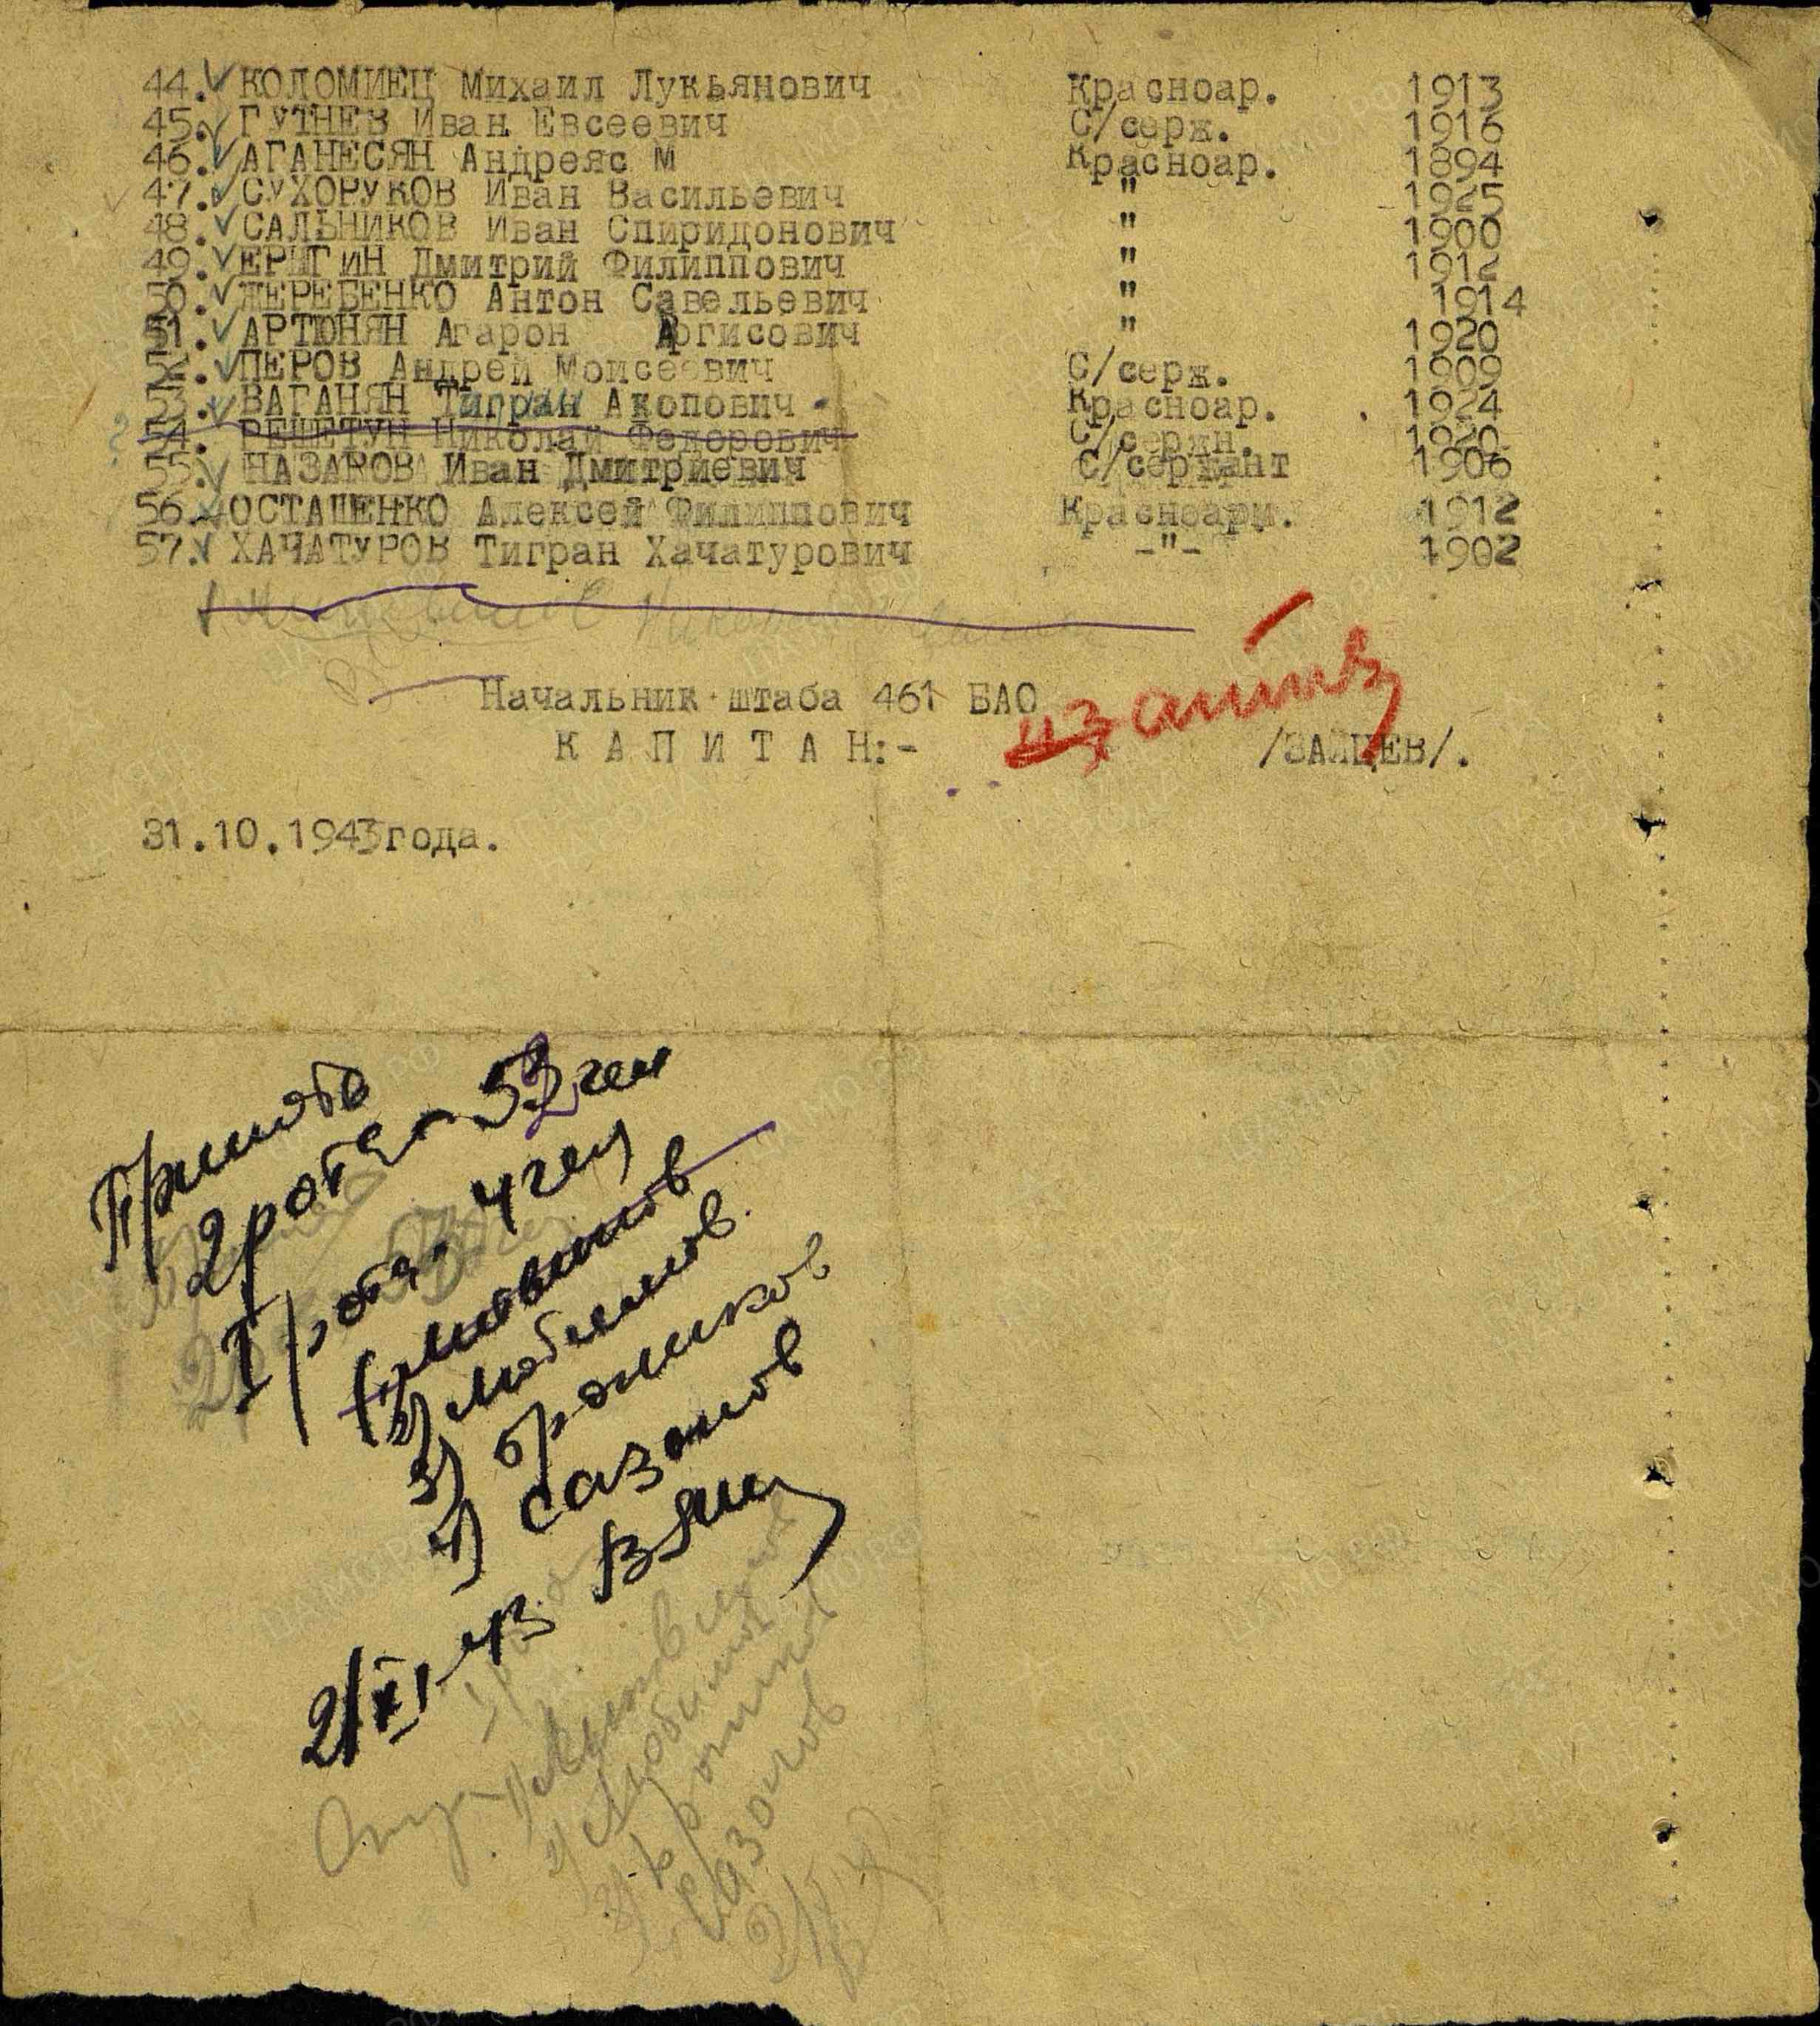 44. КОЛОМИЕЦ Михаил Лукьянович Красноар. 1913
45. ГУТНЕВ Иван Евсеевич С/серж. 1916
46. АГАНЕСЯН Андреяс М Красноар. 1894
47. СУХОРУКОВ Иван Васильевич " 1925
48. САЛЬНИКОВ Иван Спиридонович " 1900
49. ЕРЫГИН Дмитрий Филиппович " 1912
50. ЖЕРЕБЕНКО Антон Савельевич " 1914
51. АРТЮНЯН Агарон Аргисович " 1920
52. ПЕРОВ Андрей Моисеевич С/серж. 1909
53. ВАГАНЯН Тигран Акопович Красноар. 1924
54. РЕШЕТУН Николай Федорович С/сержн. 1920
55. НАЗАРОВ Иван Дмитриевич С/сержант 1906
56. ОСТАШЕНКО Алексей Филиппович Красноарм. 1912
57. ХАЧАТУРОВ Тигран Хачатурович -"- 1902
Начальник штаба 461 БАО
КАПИТАН:- /ЗАЙЦЕВ/.
31.10.1943года.
2 рота - 53 чел
I рота - 4 чел
1) Литвинов
2) Любимов
3) Броников
4) Сазонов
2/XI-43
1) Литвинов
2) Любимов
Сазонов